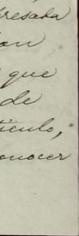 resada
an
que
de
tículo,
onocer